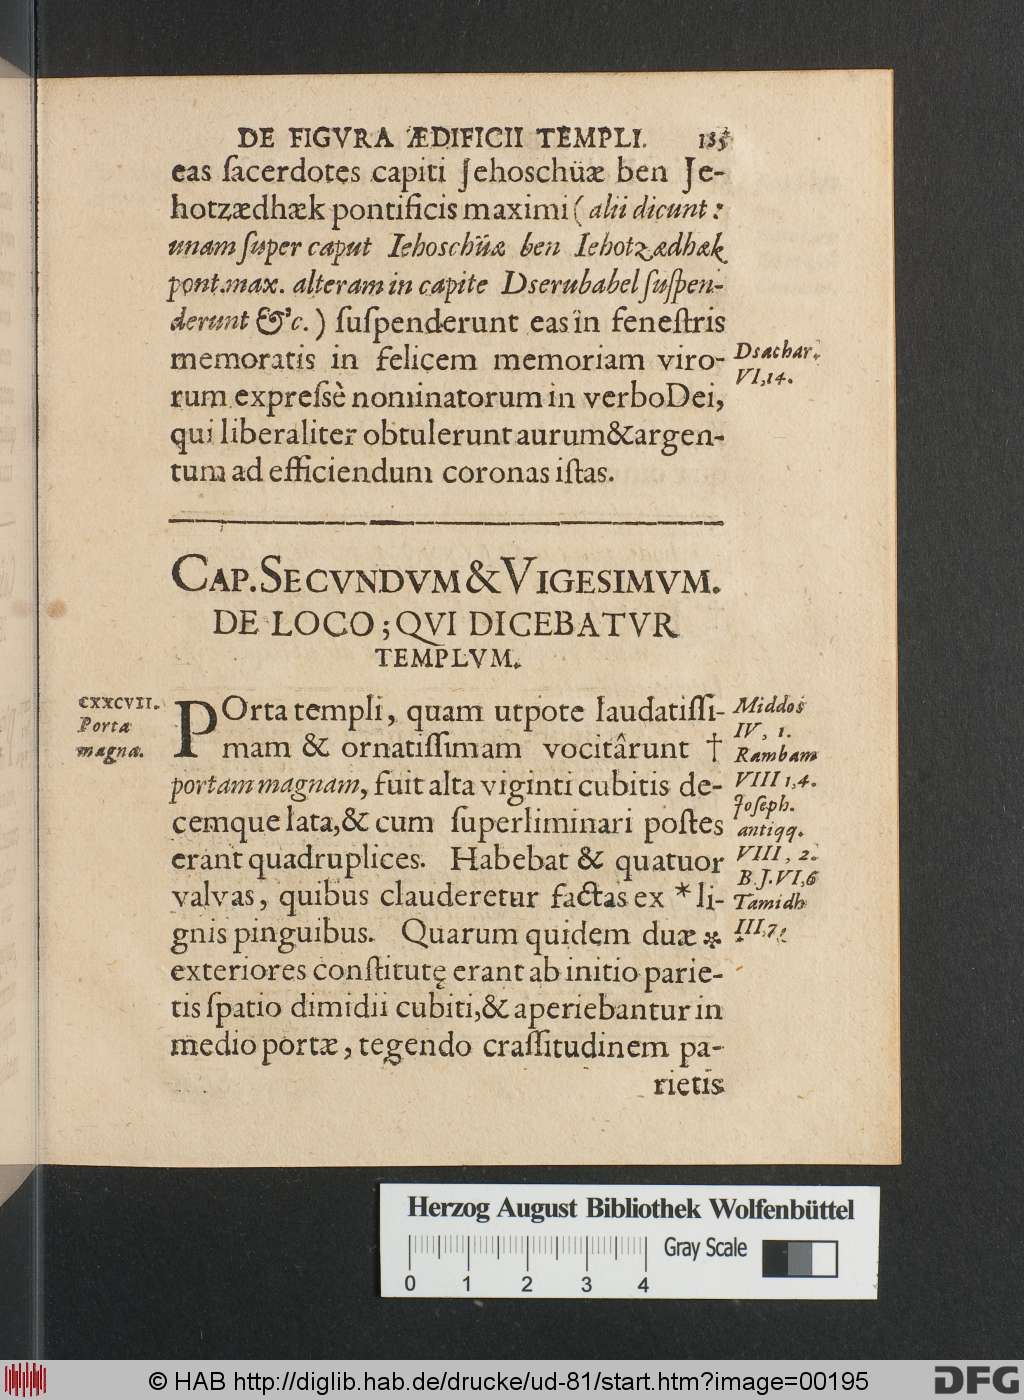 DE FIGVRA ÆDIFICII TEMPLI. 185
eas ſacerdotes capiti Jehoschüæ ben Je-
hotzædhæk pontificis maximi ( alii dicunt :
unam ſuper caput Iehoschüæ ben Iehotzædhæk
pont.max. alteram in capite Dserubabel ſuſpen-
derunt &c. ) ſuſpenderunt eas in feneſtris
memoratis in felicem memoriam viro-
rum expreſsè nominatorum in verbo Dei,
qui liberaliter obtulerunt aurum & argen-
tum ad efficiendum coronas iſtas.
Dsachar.
VI,14.
CAP. SECVNDVM & VIGESIMVM.
DE LOCO ; QVI DICEBATVR
TEMPLVM.
CXXCVII.
Porta
magna.
POrta templi, quam utpote laudatiſſi-
mam & ornatiſſimam vocitârunt †
portam magnam, fuit alta viginti cubitis de-
cemque lata, & cum ſuperliminari poſtes
erant quadruplices. Habebat & quatuor
valvas, quibus clauderetur factas ex * li-
gnis pinguibus. Quarum quidem duæ *
exteriores conſtitutę erant ab initio parie-
tis ſpatio dimidii cubiti, & aperiebantur in
medio portæ, tegendo craſſitudinem pa-
rietis
Middos
IV, 1.
Rambam
VIII 1,4.
Joſeph.
antiqq.
VIII, 2.
B.J.VI,6
Tamidh
III,7.
Herzog August Bibliothek Wolfenbüttel
Gray Scale
0 1 2 3 4
© HAB http://diglib.hab.de/drucke/ud-81/start.htm?image=00195
DFG